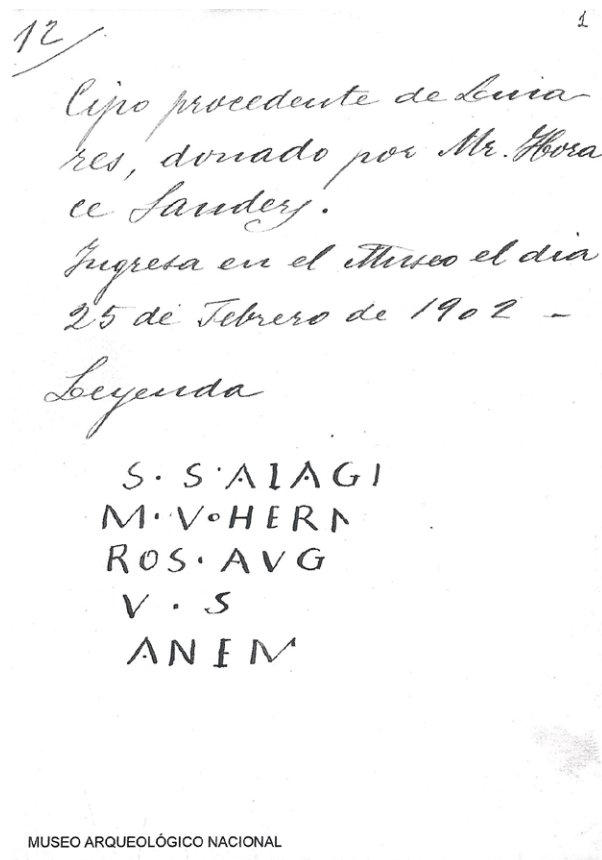 12
1
Cipo procedente de Lina-
res, donado por Mr. Hora
ce Sandes.
Ingresa en el Museo el dia
25 de Febrero de 1902 -
Leyenda
S · S · AIAGI
M · V · HERM
ROS · AVG
V · S
ANEM
MUSEO ARQUEOLÓGICO NACIONAL